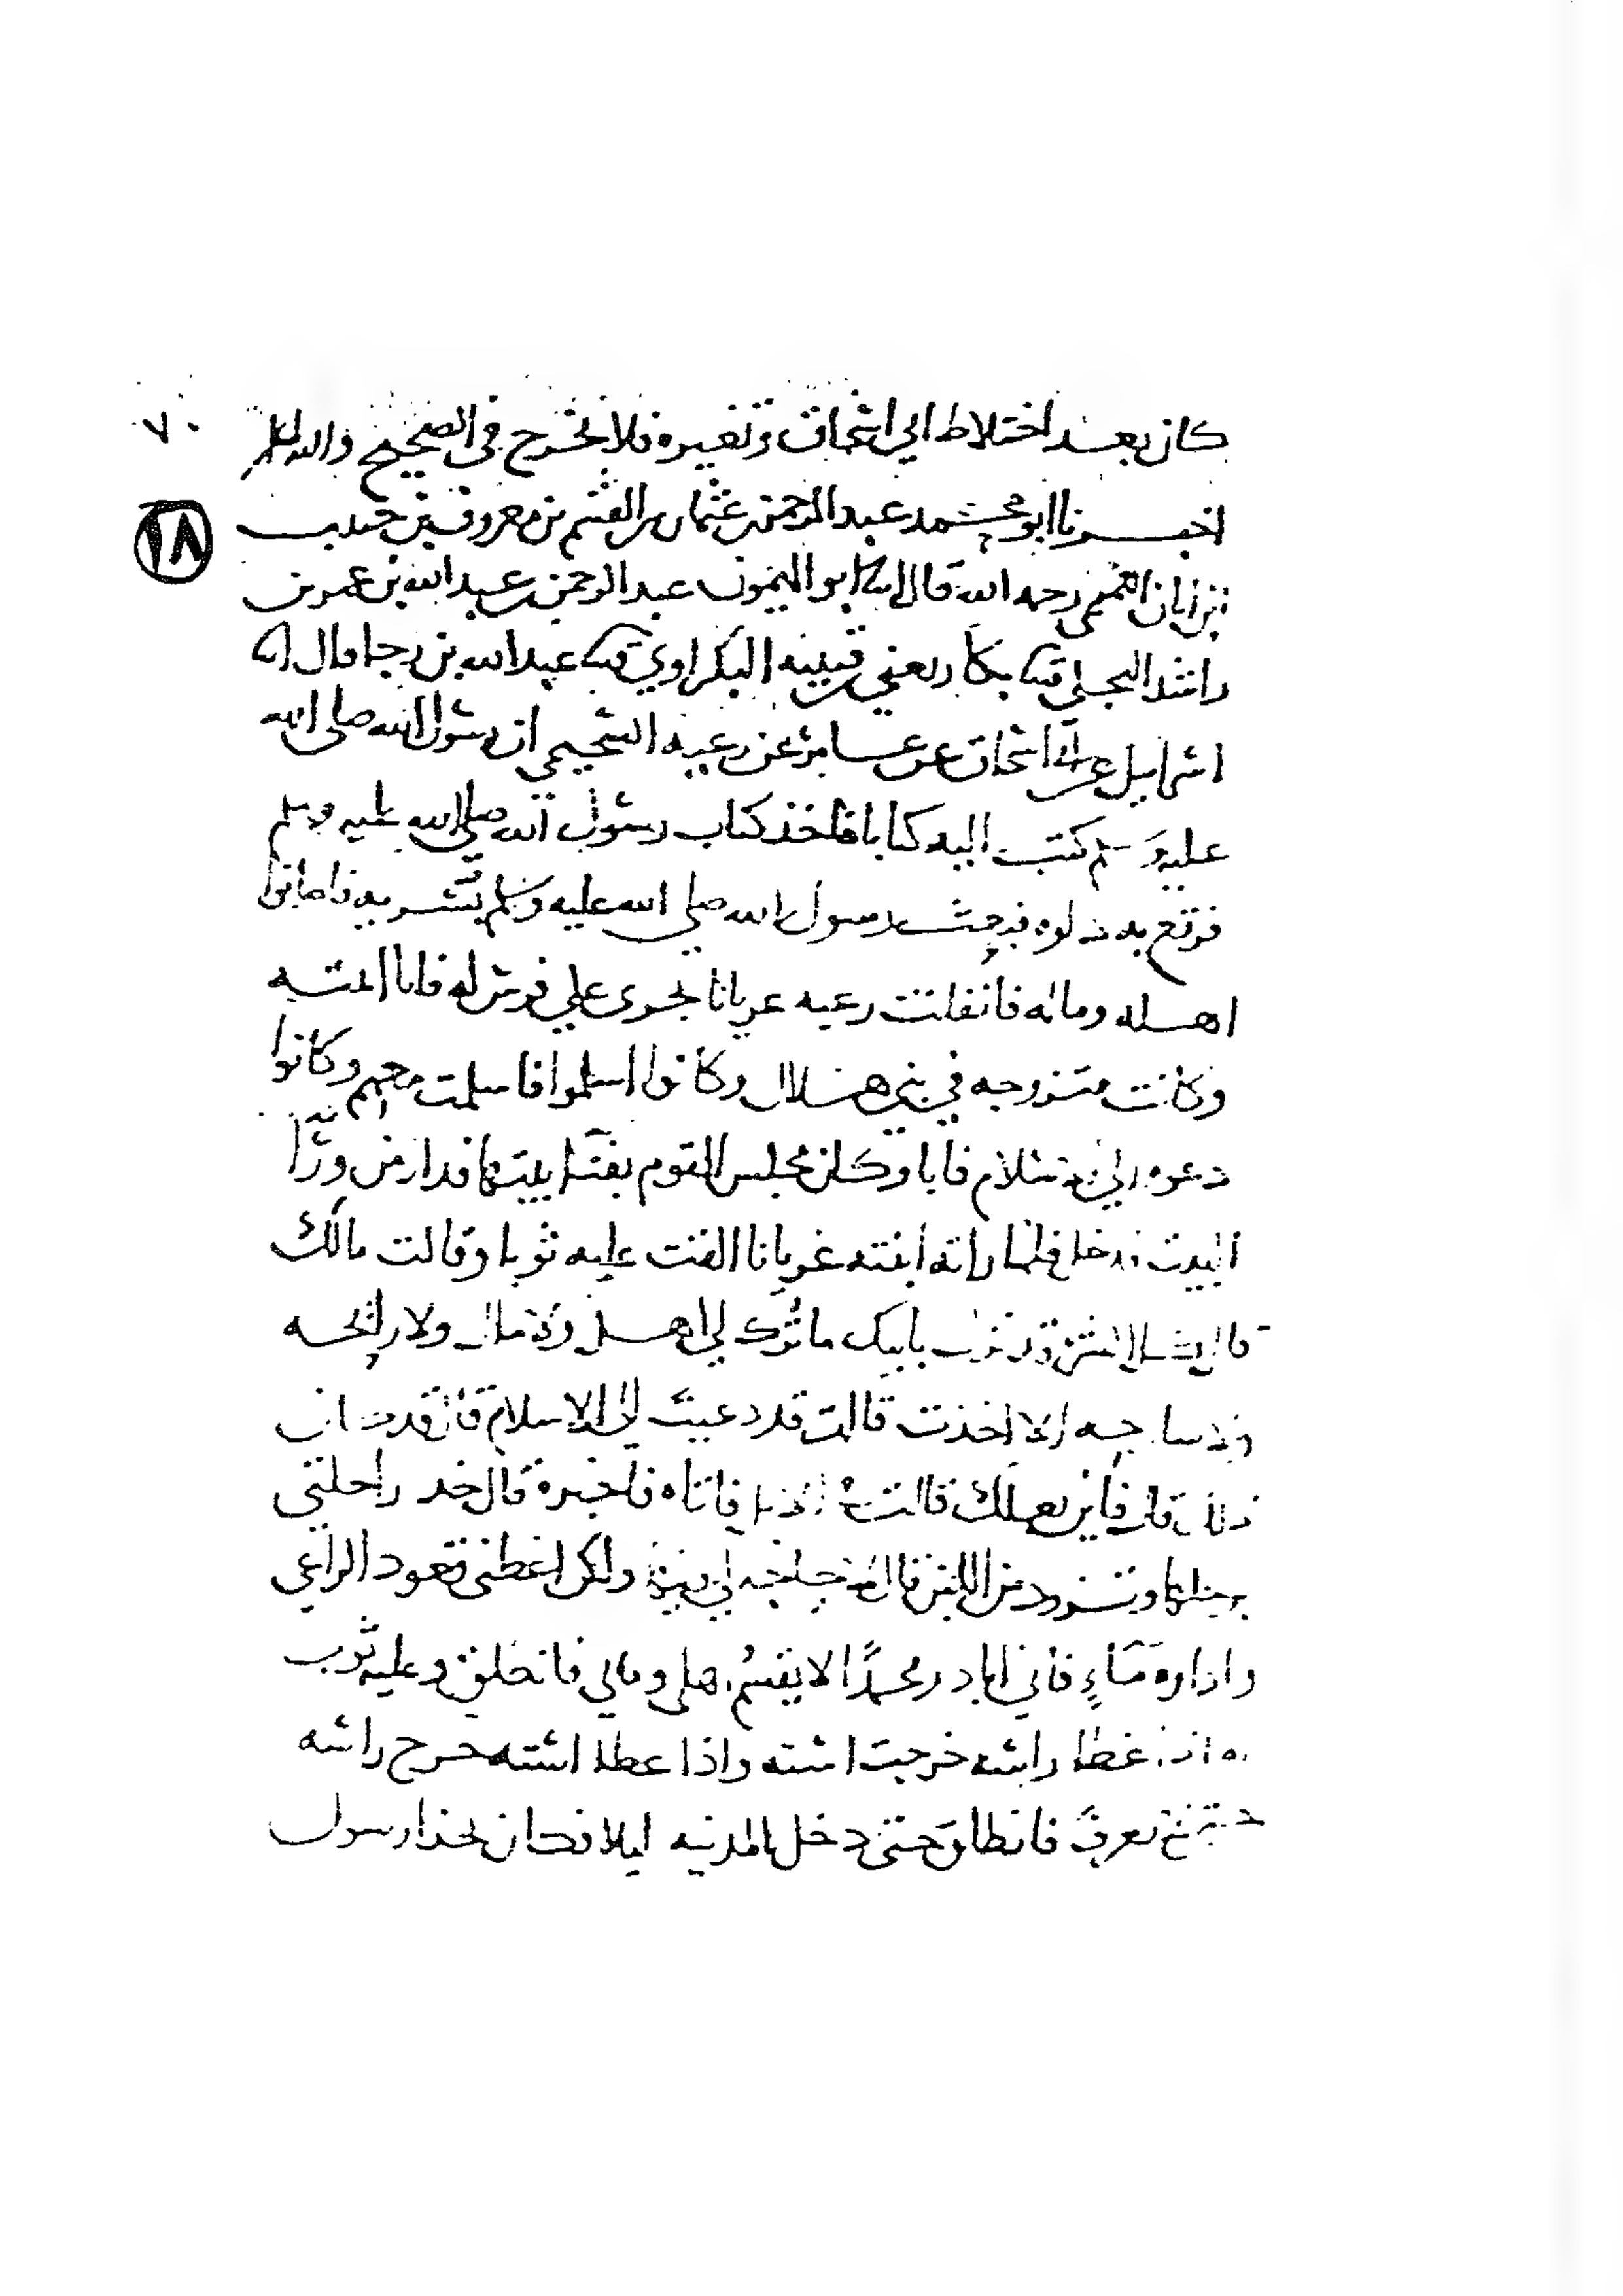 كان بعد اختلاط ابي اسحاق وتغيره فلا يخرج في الصحيح والله اعلم
٧٠
اخبرنا ابو محمد عبد الرحمن بن عثمان بن القسم بن معروف بن حبيب
١٨
بن ابان التميمي رحمه الله قال ابو الميمون عبد الرحمن بن عبد الله بن عمر بن
راشد البجلي بكار يعني بن قتيبه البكراوي عبد الله بن رجا قال
اسرايل عن ابي اسحاق عن عامر عن رعيه السحيمي ان رسول الله صلى الله
عليه وسلم كتب اليه كتابا فاخذ كتاب رسول الله صلى الله عليه وسلم
فرقع به دلوه فبعث رسول الله صلى الله عليه وسلم بسريه فاصابوا
اهله وماله فانفلت رعيه عريانا على فرس له فاتا ابنته
وكانت متزوجه في بني هلال وكانوا اسلموا فاسلمت معهم وكانوا
دعوه الى الاسلام فابا وكان مجلس القوم بفنا بيتها فدار من ورا
البيت فدخل فلما راته ابنته عريانا القت عليه ثوبا وقالت مالك
قال كل الشر قد نزل بابيك ما ترك لي اهل ولا مال ولا رائحه
ولا سارحه الا اخذت قالت قد دعيت الى الاسلام قال قد
ذلك قال فاين بعلك قالت في الابل فاتاه فاخبره قال خذ راحلتي
برحلها وتزود من اللبن قال لا حاجه لي فيه ولكن اعطني قعود الراعي
واداوة ماءٍ فاني ابادر محمدًا لا يقسمُ اهلي ومالي فانطلق وعليه ثوب
اذا غطا راسه خرجت استه واذا غطا استه خرج راسه
يعرف فانطلق حتى دخل المدينه ليلا فكان بحذا رسول